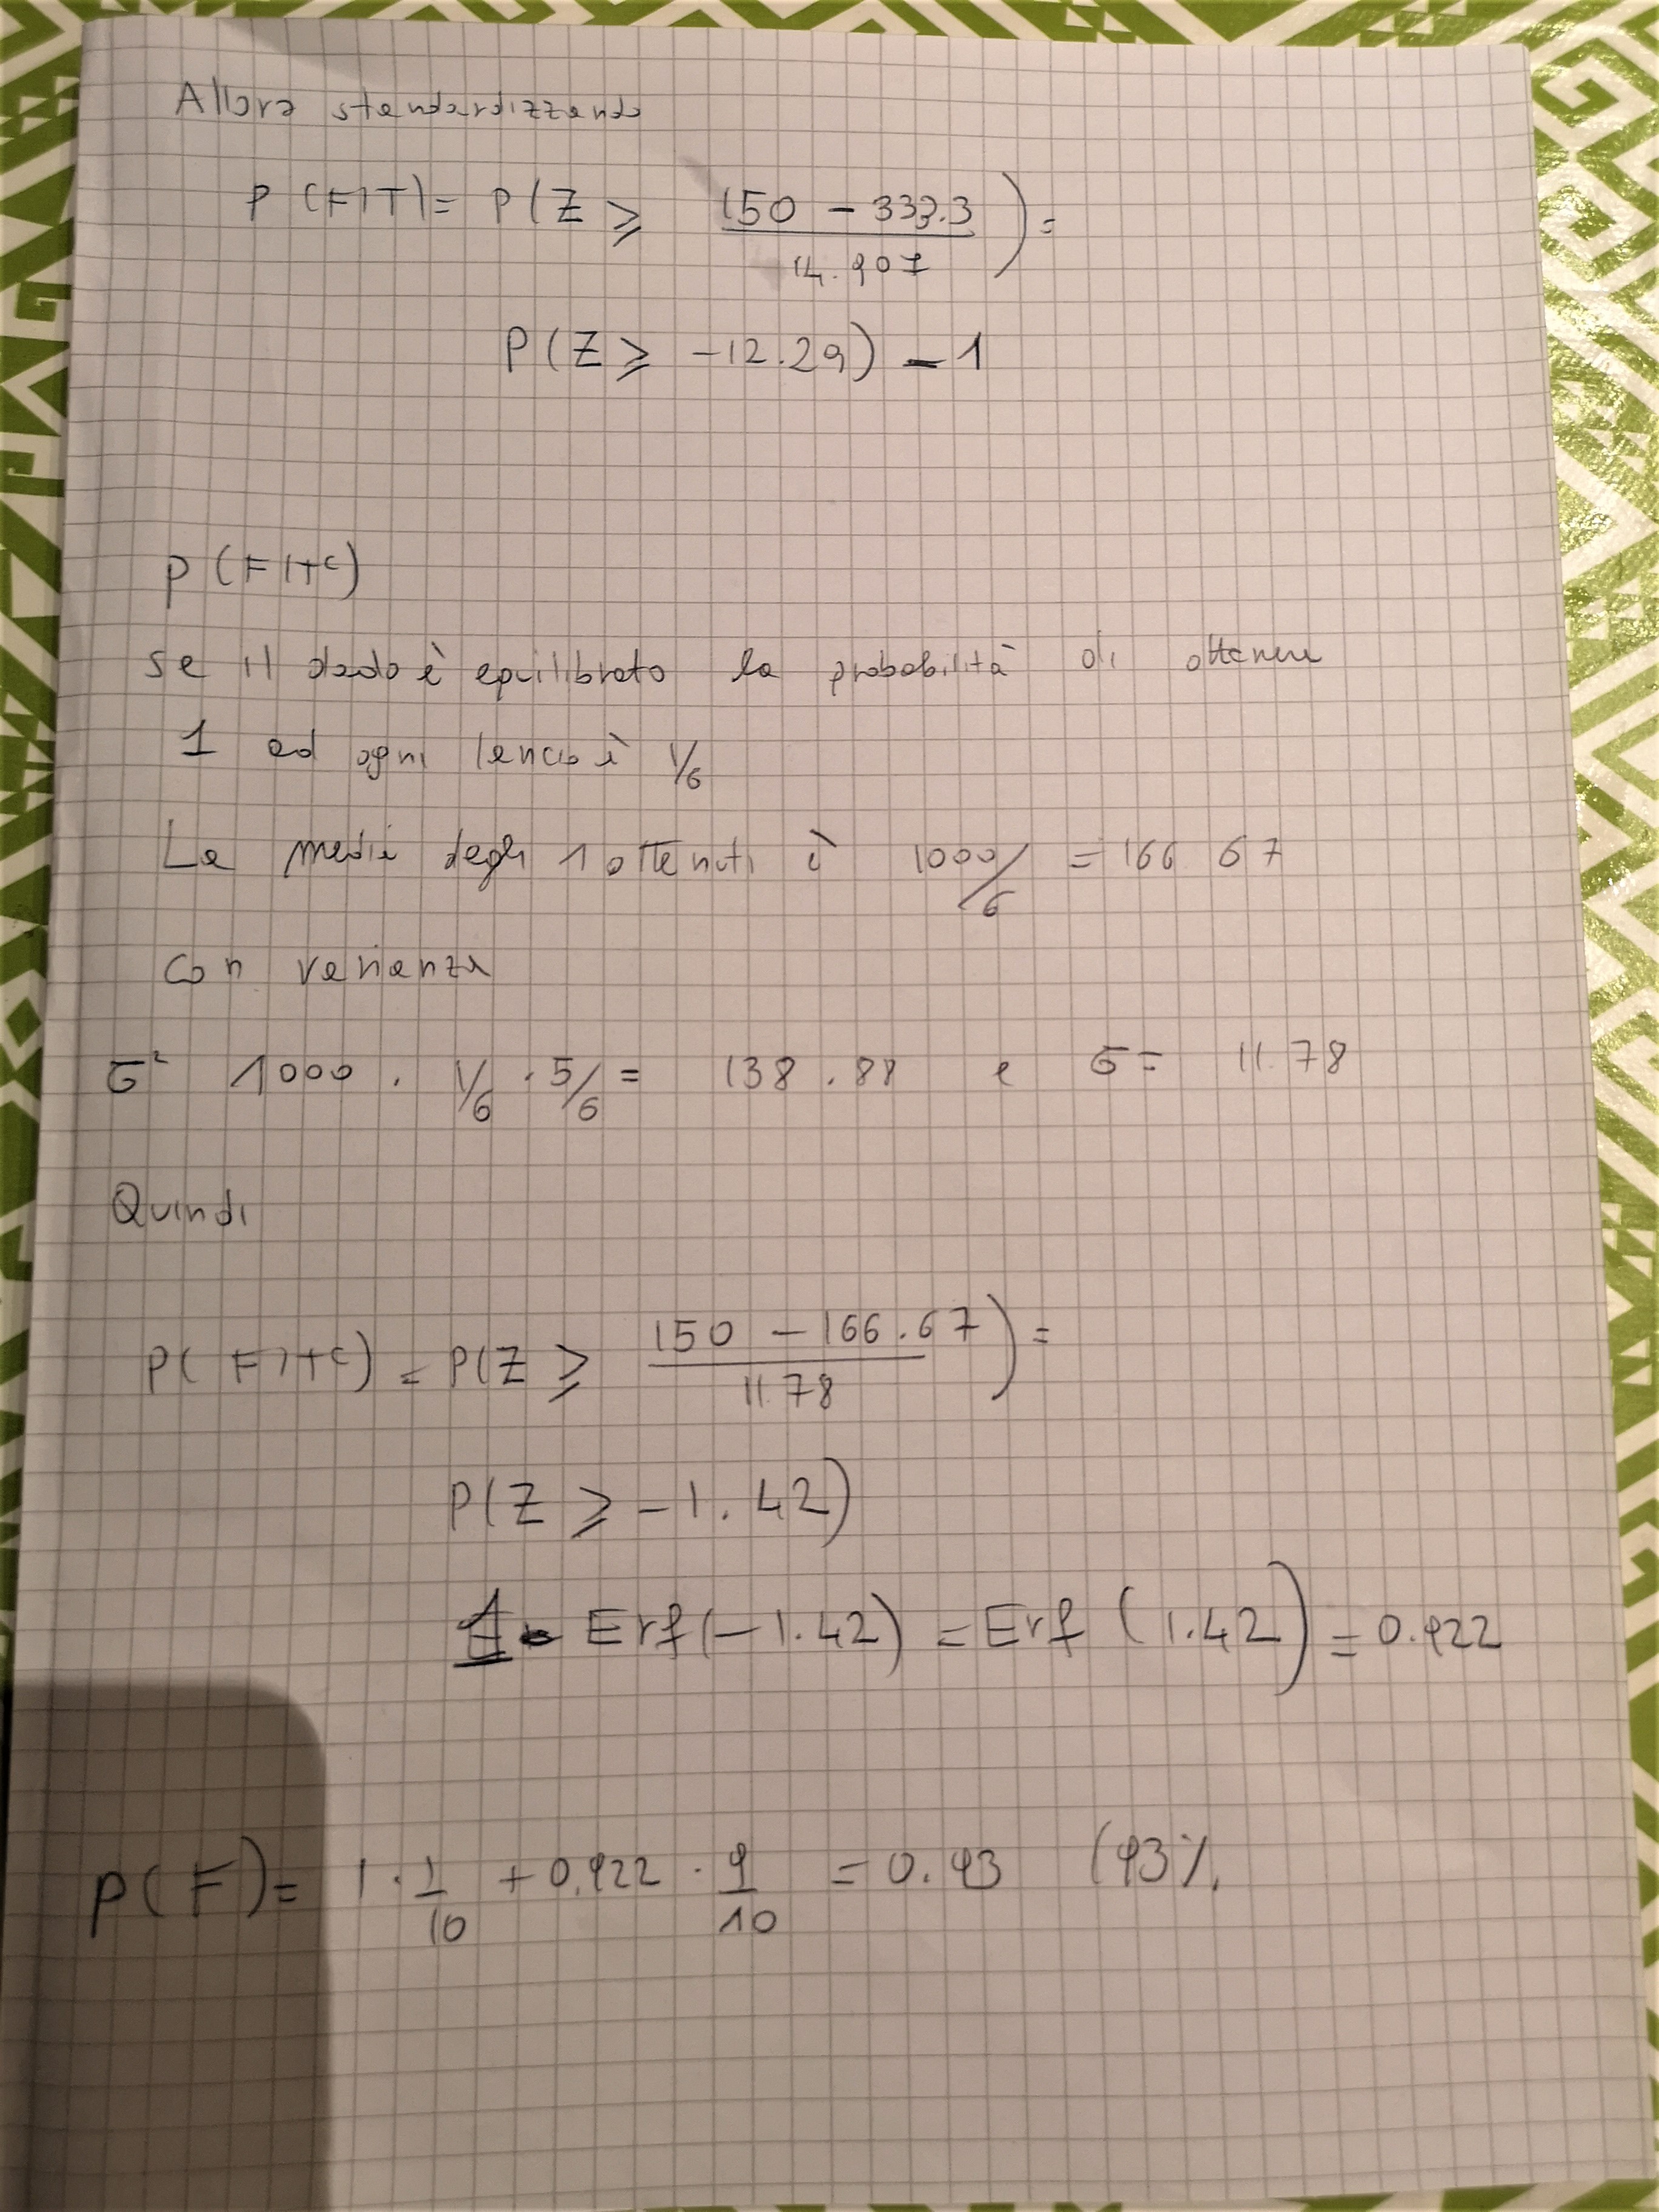 Allora standardizzando
P(F|T) = P(Z ≥ (150 - 333.3)/14.907) =
P(Z ≥ -12.29) = 1
P(F|T^c)
se il dado è equilibrato la probabilità di ottenere
1 ad ogni lancio è 1/6
La media degli 1 ottenuti è 1000/6 = 166 67
con varianza
σ² 1000 . 1/6 . 5/6 = 138.88 e σ = 11.78
Quindi
P(F|T^c) = P(Z ≥ (150 - 166.67)/11.78) =
P(Z ≥ -1.42)
1 - Erf(-1.42) = Erf(1.42) = 0.922
P(F) = 1 . 1/10 + 0.922 . 9/10 = 0.93 (93%